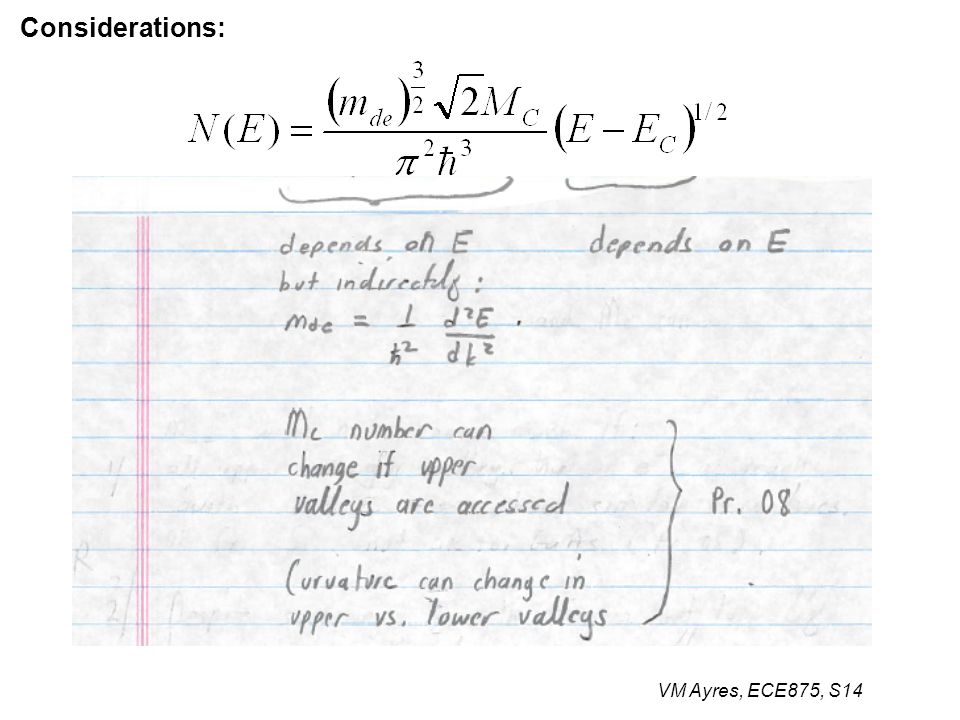 Considerations:
N(E) = (m_de)^(3/2) √2 M_C / π²ħ³ (E − E_C)^1/2
depends on E depends on E
but indirectly:
m_de = 1/ħ² d²E/dk² .
Mc number can
change if upper
valleys are accessed Pr. 08
Curvature can change in
upper vs. lower valleys
VM Ayres, ECE875, S14